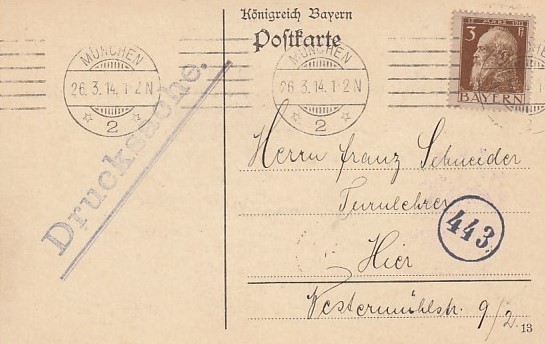 Königreich Bayern
Postkarte
12. MÄRZ 1911
3 Pf
BAYERN
MÜNCHEN
26.3.14.1-2N
2
MÜNCHEN
26.3.14.1-2N
2
Drucksache.
Herrn Franz Schneider
Turnlehrer
443
Hier
Westermühlstr. 9/2
13